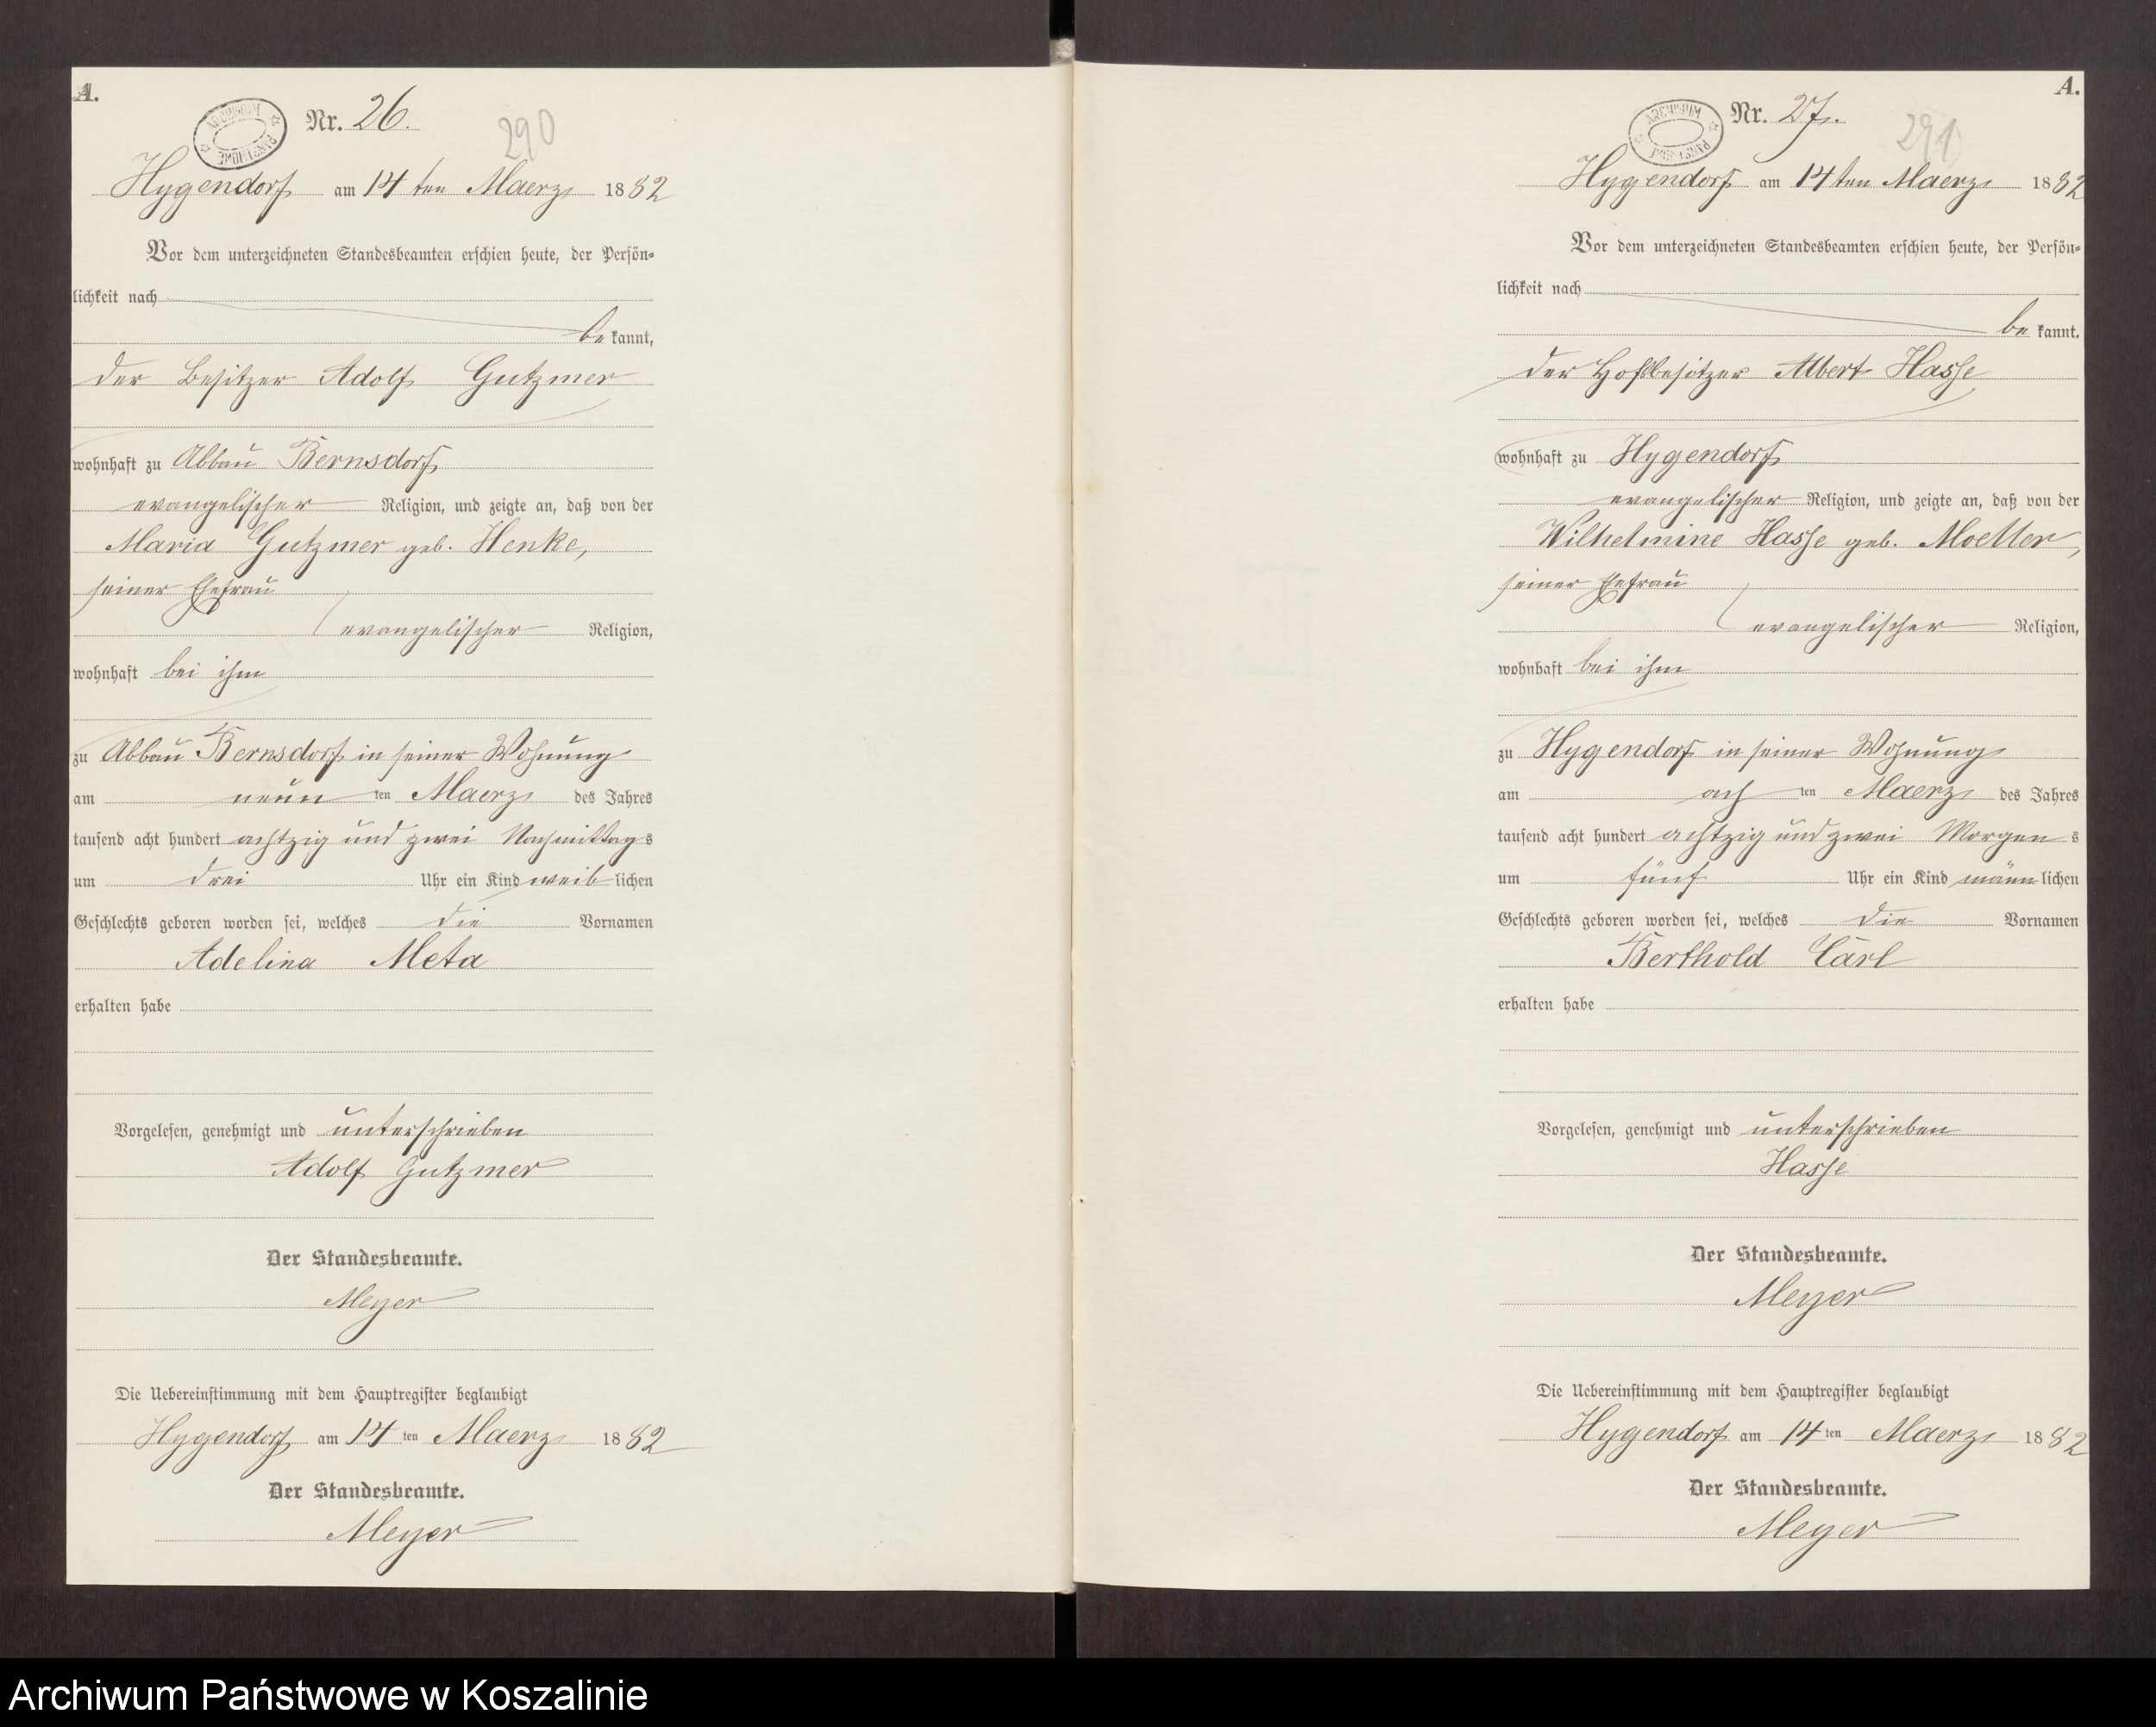 A.
Nr. 26.
290
Hygendorf am 14ten Maerz 1882
Vor dem unterzeichneten Standesbeamten erschien heute, der Persön-
lichkeit nach
bekannt,
der Besitzer Adolf Gutzmer
wohnhaft zu Abbau Bernsdorf
evangelischer Religion, und zeigte an, daß von der
Maria Gutzmer geb. Henke,
seiner Ehefrau
evangelischer Religion,
wohnhaft bei ihm
zu Abbau Bernsdorf in seiner Wohnung
am neunten Maerz des Jahres
tausend acht hundert achtzig und zwei Nachmittags
um drei Uhr ein Kind weiblichen
Geschlechts geboren worden sei, welches die Vornamen
Adelina Meta
erhalten habe
Vorgelesen, genehmigt und unterschrieben
Adolf Gutzmer
Der Standesbeamte.
Meyer
Die Uebereinstimmung mit dem Hauptregister beglaubigt
Hygendorf am 14ten Maerz 1882
Der Standesbeamte.
Meyer
A.
Nr. 27.
291
Hygendorf am 14ten Maerz 1882
Vor dem unterzeichneten Standesbeamten erschien heute, der Persön-
lichkeit nach
bekannt,
der Hofbesitzer Albert Hasse
wohnhaft zu Hygendorf
evangelischer Religion, und zeigte an, daß von der
Wilhelmine Hasse geb. Moeller,
seiner Ehefrau
evangelischer Religion,
wohnhaft bei ihm
zu Hygendorf in seiner Wohnung
am achten Maerz des Jahres
tausend acht hundert achtzig und zwei Morgens
um fünf Uhr ein Kind männlichen
Geschlechts geboren worden sei, welches die Vornamen
Berthold Carl
erhalten habe
Vorgelesen, genehmigt und unterschrieben
Hasse
Der Standesbeamte.
Meyer
Die Uebereinstimmung mit dem Hauptregister beglaubigt
Hygendorf am 14ten Maerz 1882
Der Standesbeamte.
Meyer
Archiwum Państwowe w Koszalinie